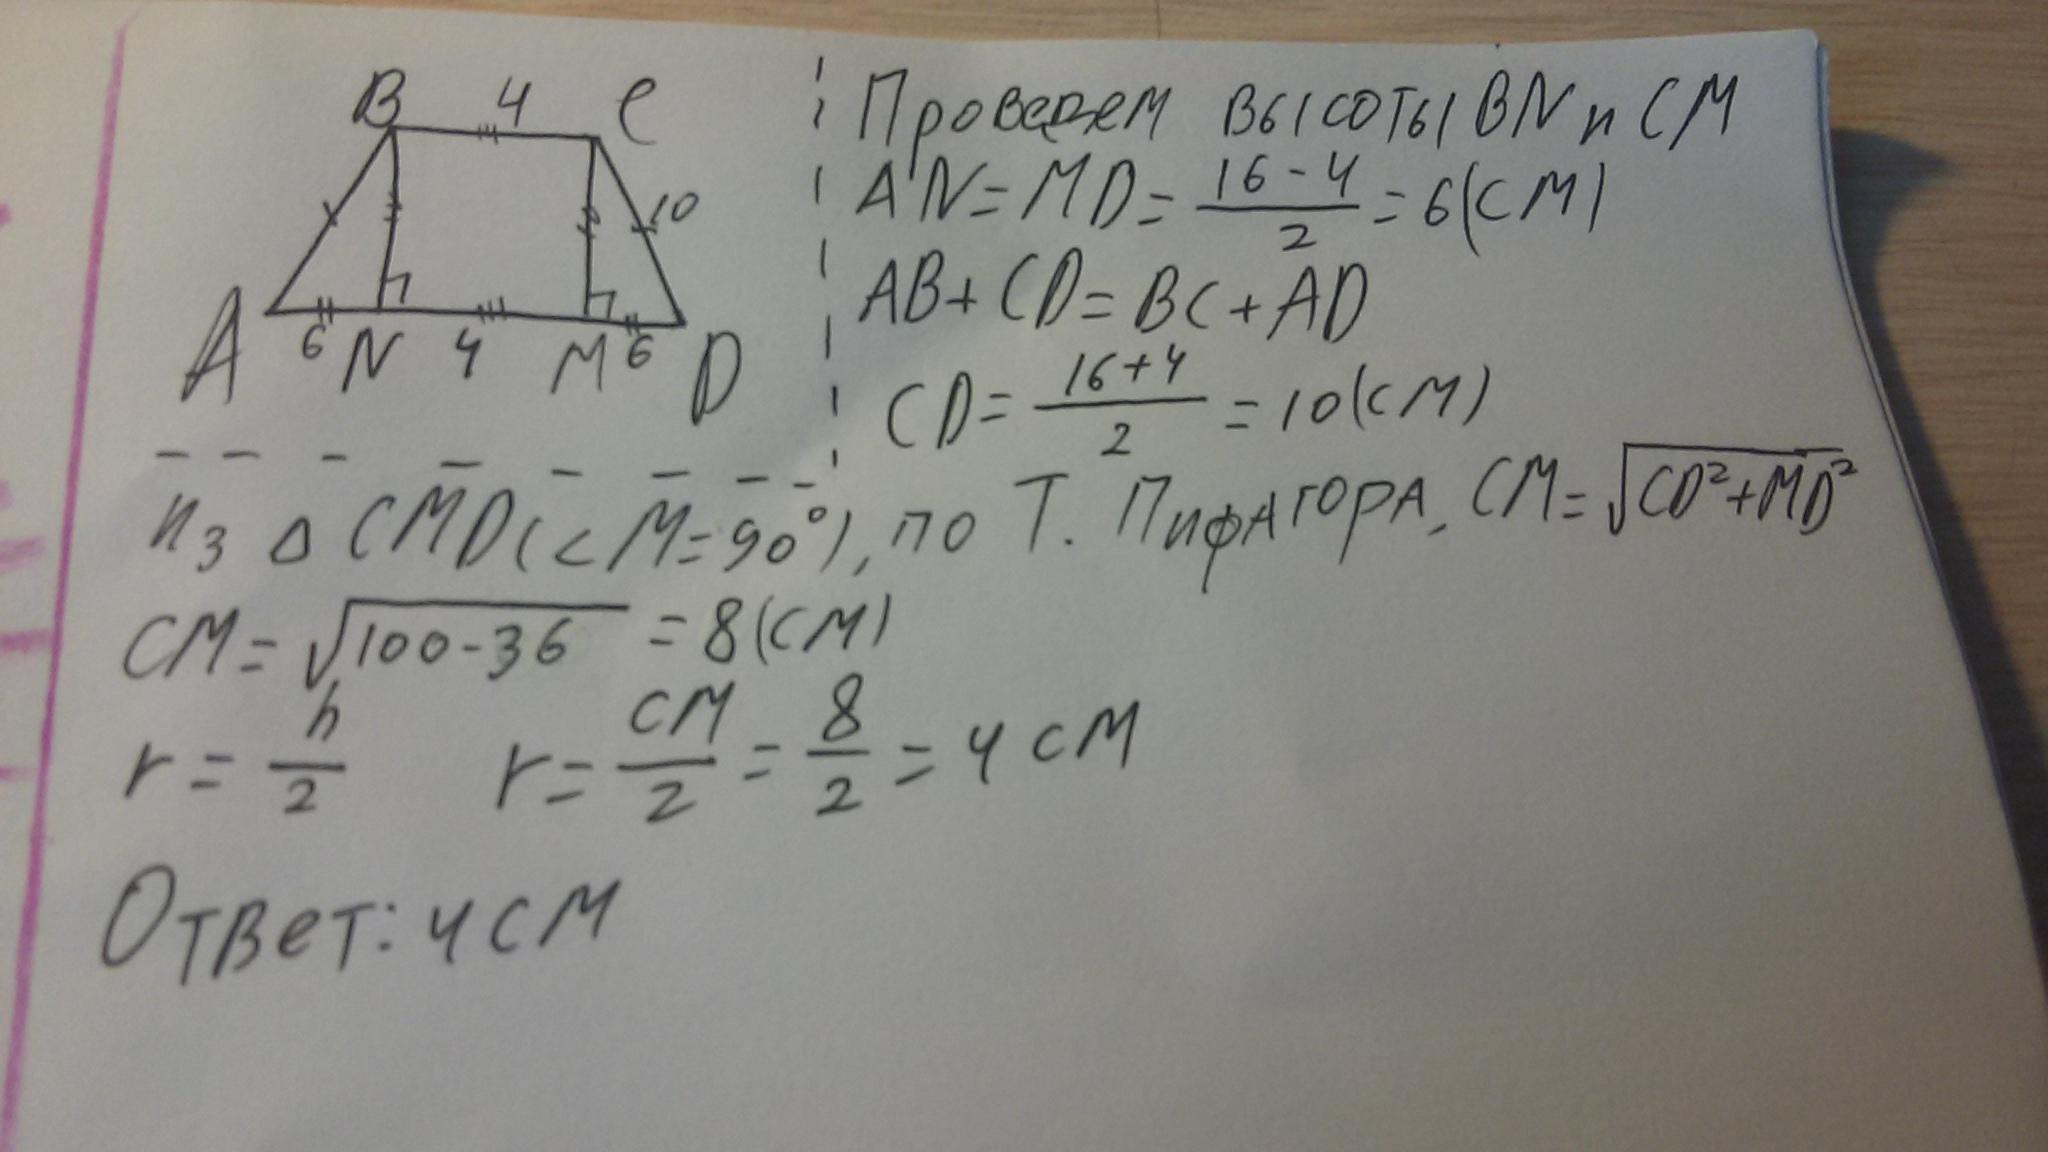 B 4 C
10
A 6 N 4 M 6 D
Проведем высоты BN и CM
AN = MD = \frac{16-4}{2} = 6 (см)
AB + CD = BC + AD
CD = \frac{16+4}{2} = 10 (см)
Из △ CMD (< M = 90°), по Т. Пифагора, CM = √CD²+MD²
CM = √100-36 = 8 (см)
r = \frac{h}{2} r = \frac{CM}{2} = \frac{8}{2} = 4 см
Ответ: 4 см